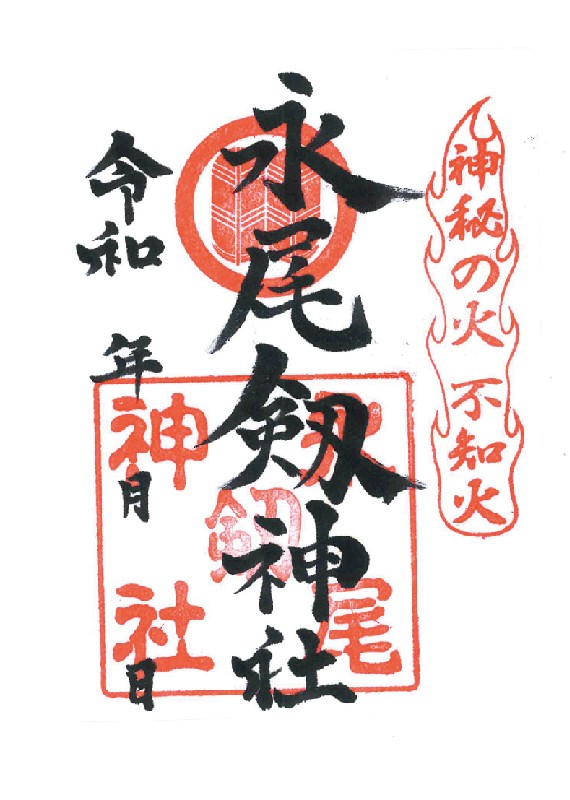 神秘の火 不知火
永尾剱神社
永尾
剱
神社
令和 年 月 日